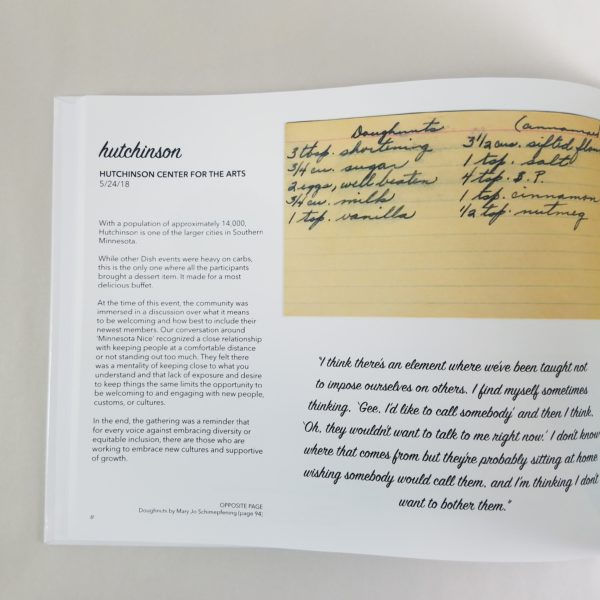 hutchinson
HUTCHINSON CENTER FOR THE ARTS
5/24/18
With a population of approximately 14,000,
Hutchinson is one of the larger cities in Southern
Minnesota.
While other Dish events were heavy on carbs,
this is the only one where all the participants
brought a dessert item. It made for a most
delicious buffet.
At the time of this event, the community was
immersed in a discussion over what it means
to be welcoming and how best to include their
newest members. Our conversation around
'Minnesota Nice' recognized a close relationship
with keeping people at a comfortable distance
or not standing out too much. They felt there
was a mentality of keeping close to what you
understand and that lack of exposure and desire
to keep things the same limits the opportunity to
be welcoming to and engaging with new people,
customs, or cultures.
In the end, the gathering was a reminder that
for every voice against embracing diversity or
equitable inclusion, there are those who are
working to embrace new cultures and supportive
of growth.
OPPOSITE PAGE
Doughnuts by Mary Jo Schimepfening (page 94)
Doughnuts
3 tbsp. shortening
3/4 cu. sugar
2 eggs, well beaten
3/4 cu. milk
1 tsp. vanilla
3 1/2 cu. sifted
1 tsp. salt
4 tsp. B.P.
1 tsp. cinnamon
1/2 tsp. nutmeg
"I think there's an element where we've been taught not
to impose ourselves on others. I find myself sometimes
thinking, 'Gee, I'd like to call somebody' and then I think,
'Oh, they wouldn't want to talk to me right now.' I don't know
where that comes from but they're probably sitting at home
wishing somebody would call them, and I'm thinking I don't
want to bother them."